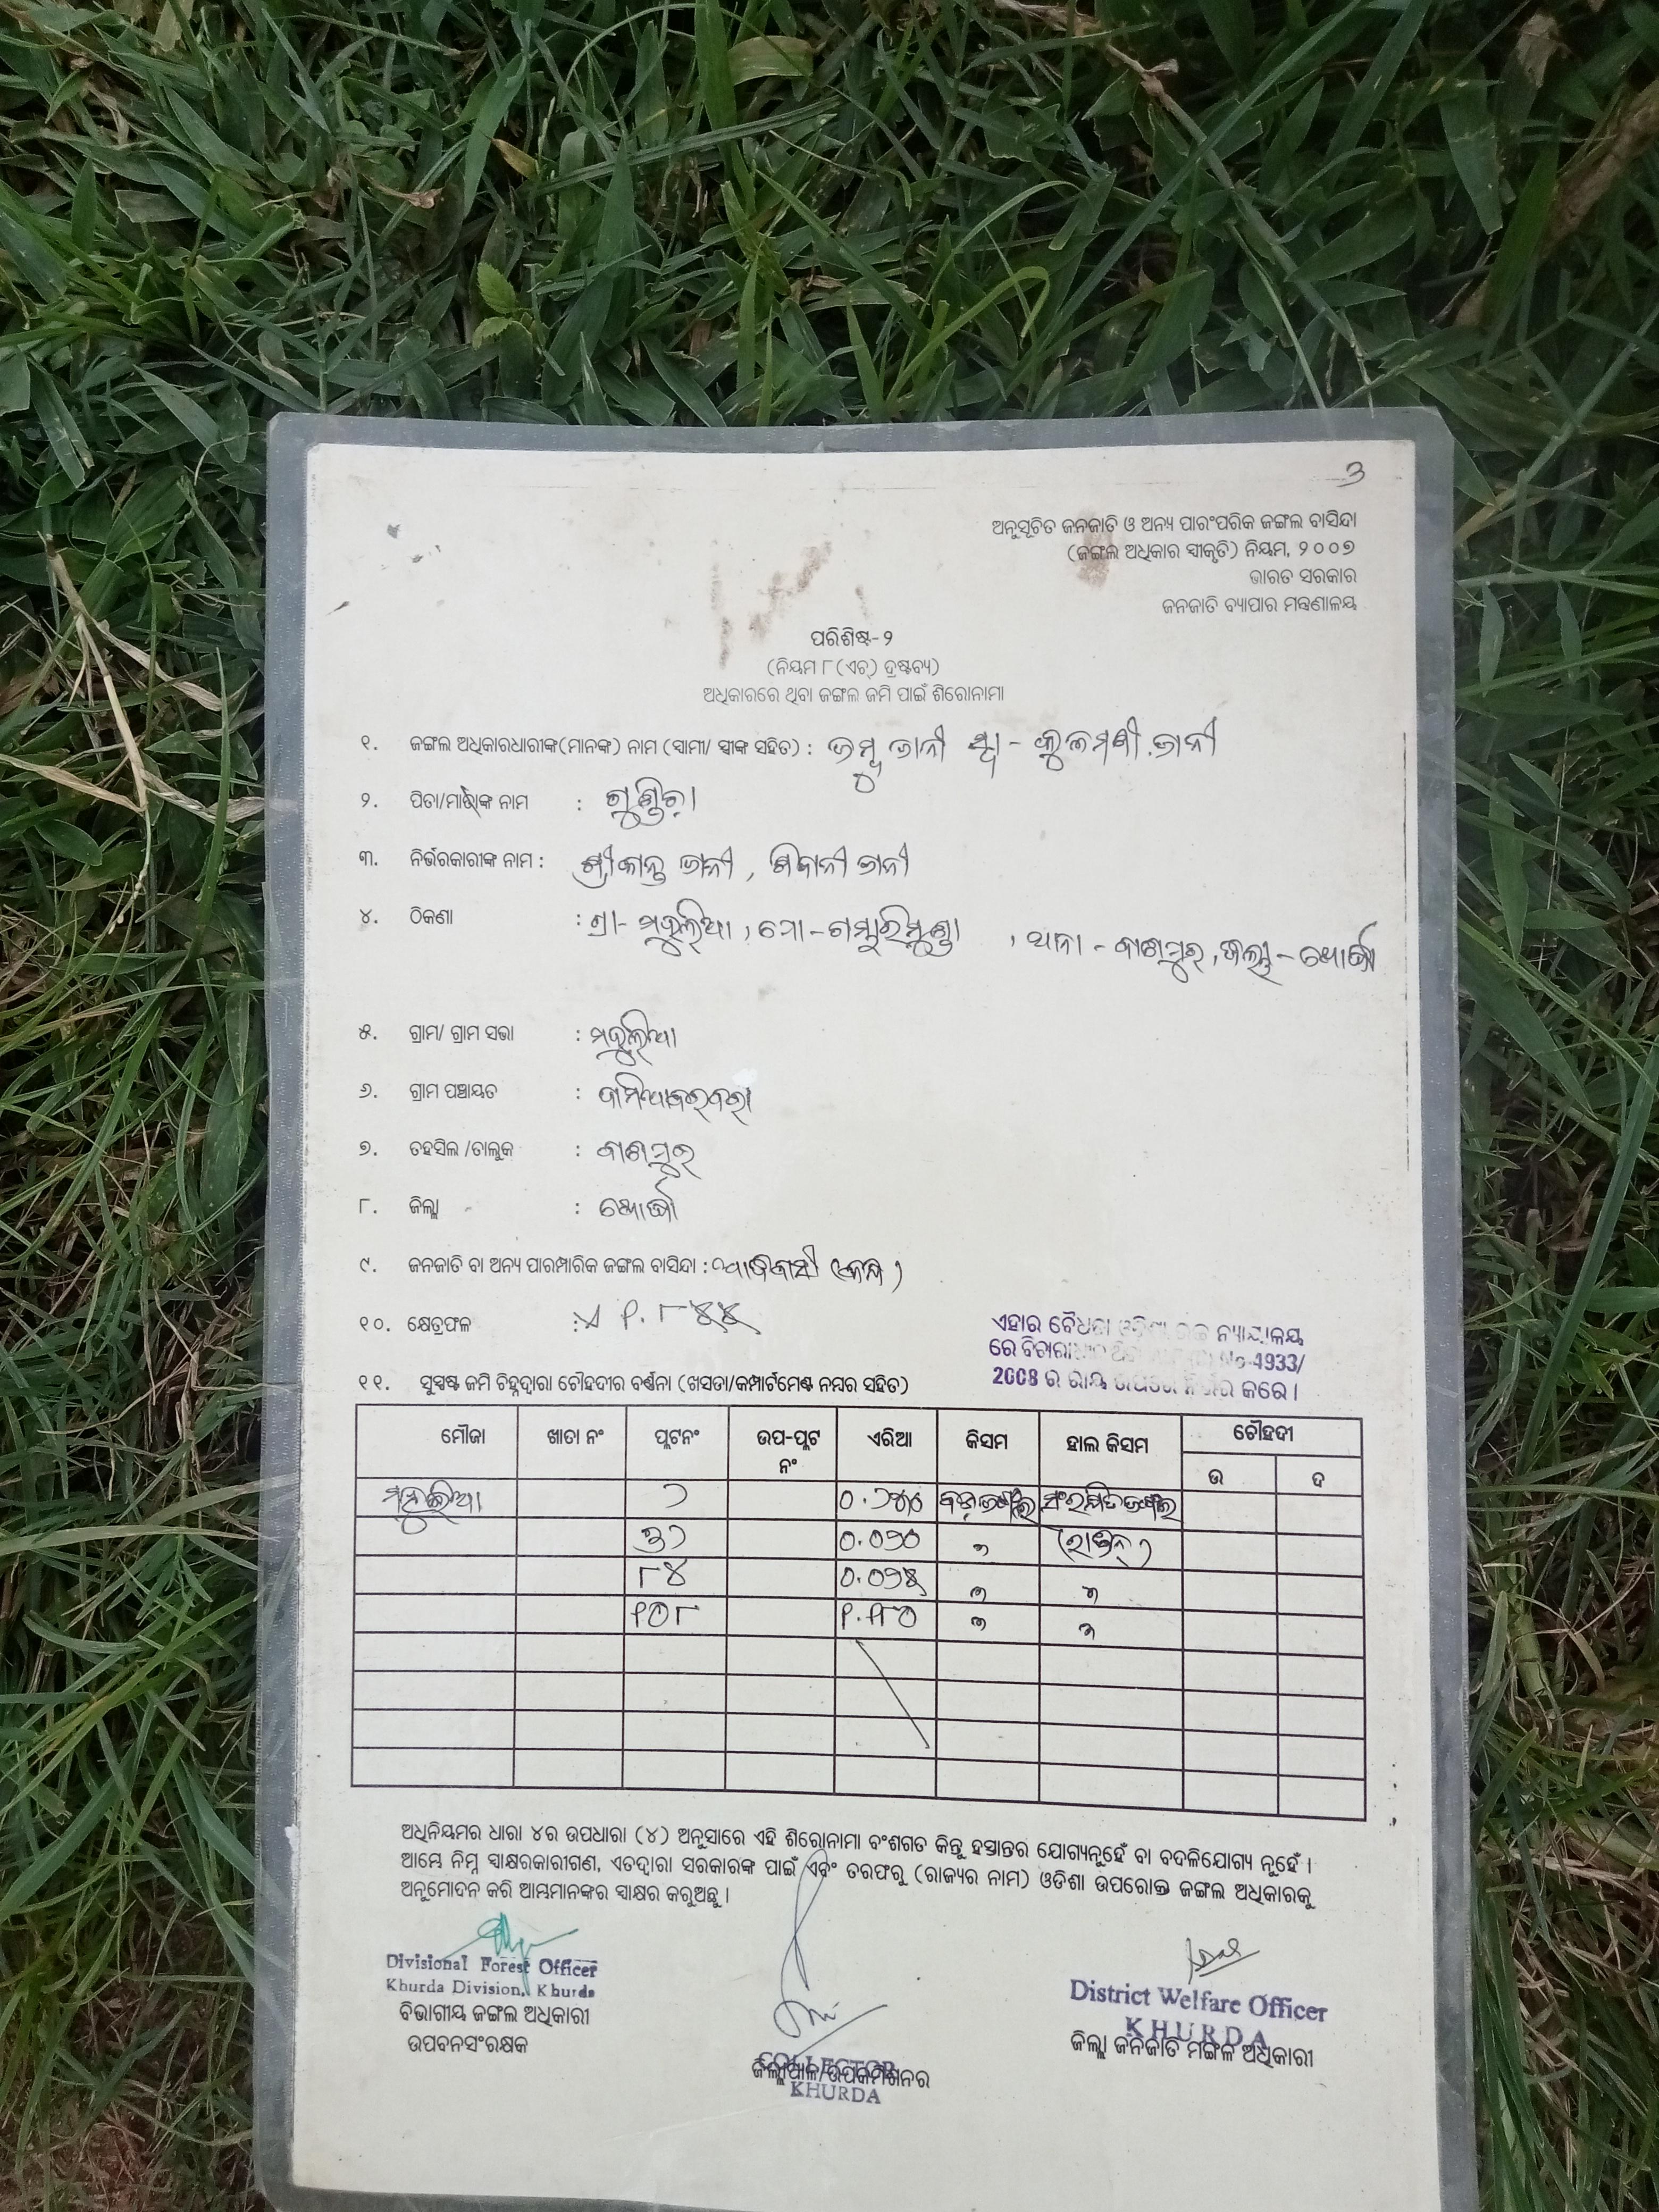 ୬
ଅନୁସୂଚିତ ଜନଜାତି ଓ ଅନ୍ୟ ପାରଂପରିକ ଜଙ୍ଗଲ ବାସିନ୍ଦା
(ଜଙ୍ଗଲ ଅଧିକାର ସ୍ୱୀକୃତି) ନିୟମ, ୨୦୦୭
ଭାରତ ସରକାର
ଜନଜାତି ବ୍ୟାପାର ମନ୍ତ୍ରଣାଳୟ
ପରିଶିଷ୍ଟ-୨
(ନିୟମ ୮(ଏଚ୍) ଦ୍ରଷ୍ଟବ୍ୟ)
ଅଧିକାରରେ ଥିବା ଜଙ୍ଗଲ ଜମି ପାଇଁ ଶିରୋନାମା
୧. ଜଙ୍ଗଲ ଅଧିକାରଧାରୀଙ୍କ(ମାନଙ୍କ) ନାମ (ସ୍ୱାମୀ/ ସ୍ତ୍ରୀଙ୍କ ସହିତ) :
୨. ପିତା/ମାତାଙ୍କ ନାମ : ଗୁଣ୍ଡିଚା
୩. ନିର୍ଭରକାରୀଙ୍କ ନାମ : ଶ୍ରୀକାନ୍ତ
୪. ଠିକଣା : ଗ୍ରା- ମହୁଲିଆ, ପୋ- , ଥାନା - ବାଣପୁର, ଜିଲ୍ଲା - ଖୋର୍ଦ୍ଧା
୫. ଗ୍ରାମ/ ଗ୍ରାମ ସଭା : ମହୁଲିଆ
୬. ଗ୍ରାମ ପଞ୍ଚାୟତ :
୭. ତହସିଲ /ତାଲୁକ : ବାଣପୁର
୮. ଜିଲ୍ଲା : ଖୋର୍ଦ୍ଧା
୯. ଜନଜାତି ବା ଅନ୍ୟ ପାରମ୍ପାରିକ ଜଙ୍ଗଲ ବାସିନ୍ଦା : ଆଦିବାସୀ (କନ୍ଧ)
୧୦. କ୍ଷେତ୍ରଫଳ :
ଏହାର ବୈଧତା ଓଡ଼ିଶା ଉଚ୍ଚ ନ୍ୟାୟାଳୟ
ରେ ବିଚାରାଧୀନ No-4933/
2008 ର ରାୟ ଉପରେ ନିର୍ଭର କରେ ।
୧୧. ସୁସ୍ପଷ୍ଟ ଜମି ଚିହ୍ନଦ୍ୱାରା ଚୌହଦୀର ବର୍ଣ୍ଣନା (ଖସଡା/କମ୍ପାର୍ଟମେଣ୍ଟ ନମ୍ବର ସହିତ)
ମୌଜା ଖାତା ନଂ ପ୍ଲଟନଂ ଉପ-ପ୍ଲଟ ନଂ ଏରିଆ କିସମ ହାଲ କିସମ ଚୌହଦୀ
ଉ ଦ
ମହୁଲିଆ ୨ ବଡ଼ଜଙ୍ଗଲ ସଂରକ୍ଷିତଜଙ୍ଗଲ
୦.୦୭୦
୮୪
୧୦୮
ଅଧିନିୟମର ଧାରା ୪ର ଉପଧାରା (୪) ଅନୁସାରେ ଏହି ଶିରୋନାମା ବଂଶଗତ କିନ୍ତୁ ହସ୍ତାନ୍ତର ଯୋଗ୍ୟନୁହେଁ ବା ବଦଳିଯୋଗ୍ୟ ନୁହେଁ ।
ଆମ୍ଭେ ନିମ୍ନ ସ୍ୱାକ୍ଷରକାରୀଗଣ, ଏତଦ୍ୱାରା ସରକାରଙ୍କ ପାଇଁ ଏବଂ ତରଫରୁ (ରାଜ୍ୟର ନାମ) ଓଡିଶା ଉପରୋକ୍ତ ଜଙ୍ଗଲ ଅଧିକାରକୁ
ଅନୁମୋଦନ କରି ଆମ୍ଭମାନଙ୍କର ସ୍ୱାକ୍ଷର କରୁଅଛୁ ।
Divisional Forest Officer
Khurda Division, Khurda
ବିଭାଗୀୟ ଜଙ୍ଗଲ ଅଧିକାରୀ
ଉପବନସଂରକ୍ଷକ
COLLECTOR
ଜିଲ୍ଲାପାଳ/ଉପକମିଶନର
KHURDA
District Welfare Officer
KHURDA
ଜିଲ୍ଲା ଜନଜାତି ମଙ୍ଗଳ ଅଧିକାରୀ